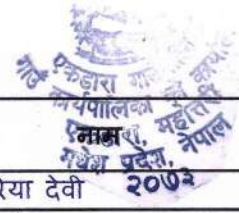 एकडारा गाउँ
गाउँ कार्यपालिकाको कार्यालय
एकडारा, महोत्तरी
मधेश प्रदेश, नेपाल
२०७३
नाम
रिया देवी